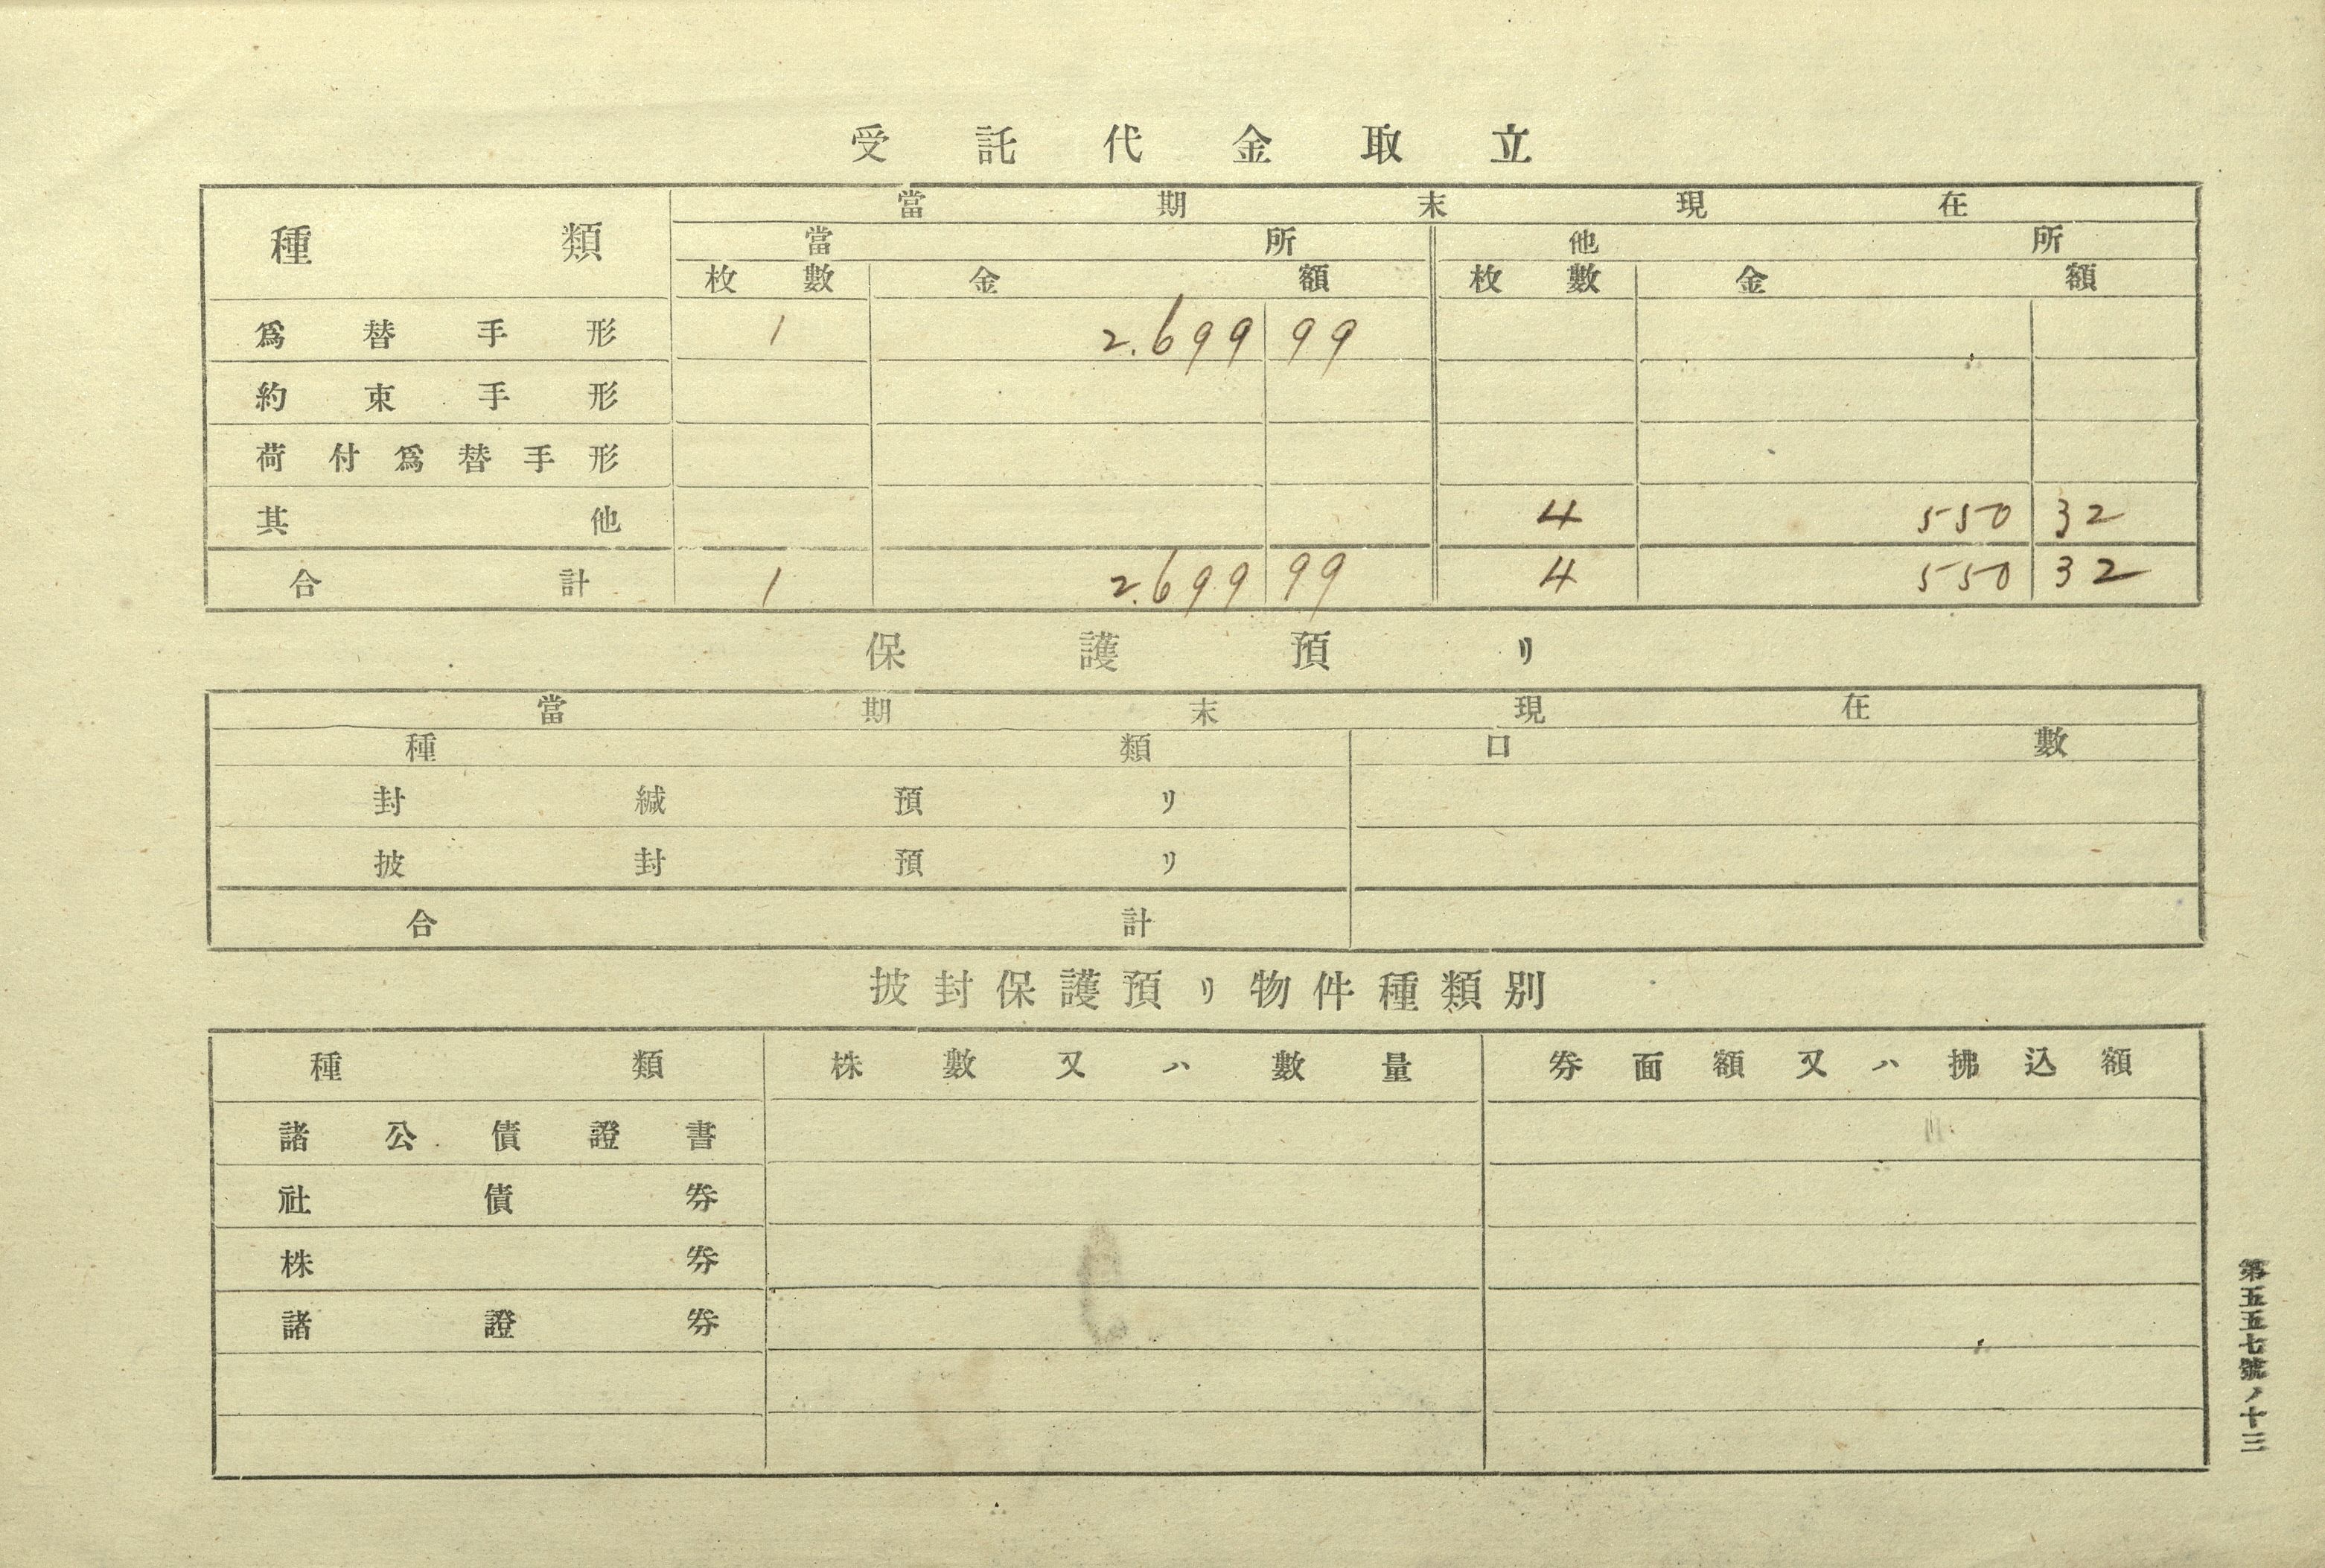 受託代金取立
種類 當期末現在
當所 他所
枚數 金額 枚數 金額
爲替手形 1 2.699 99
約束手形
荷付爲替手形
其他 4 550 32
合計 1 2.699 99 4 550 32
保護預リ
當期末現在
種類 口數
封緘預リ
披封預リ
合計
披封保護預リ物件種類別
種類 株數又ハ數量 券面額又ハ拂込額
諸公債證書
社債券
株券
諸證券
第五五七號ノ十三